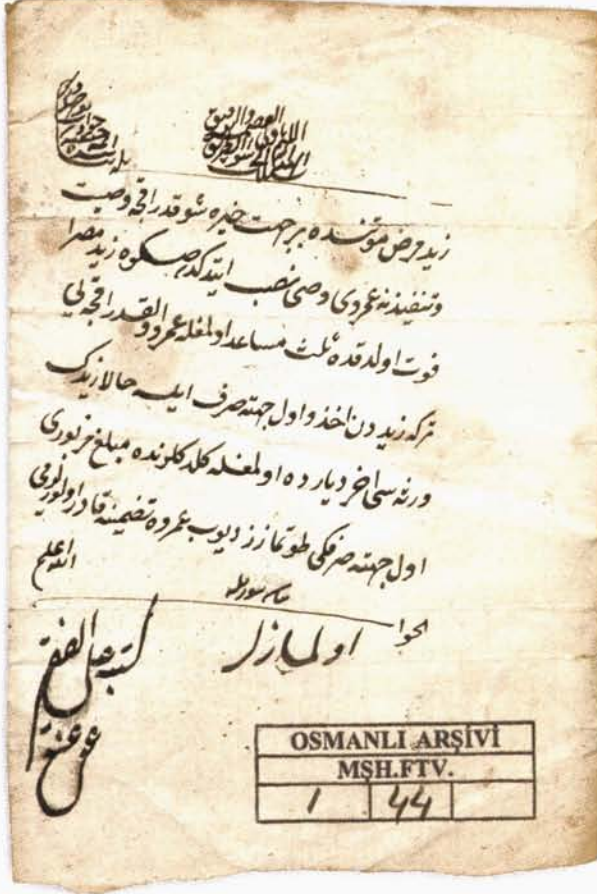 زيد مرض موتنده بر جهت خيره شو قدر اقچه وصيت
وتنفيذنه عمروى وصى نصب ايتدكدنصكره زيد مصرا
فوت اولدقده ثلث مساعد اولمغله عمرو اول قدر اقچه يى
تركه زيددن اخذ و اول جهته صرف ايلسه حالا زيدك
ورثه سى اخر ديارده اولمغله كلدكلرنده مبلغ مزبورى
اول جهته صرفكى طوتمازز ديوب عمروه تضمينه قادر اولورلرمى
الله اعلم
الجواب
اولمازلر
كتبه على الفقير
عفى عنه
OSMANLI ARŞİVİ
MŞH.FTV.
1 44